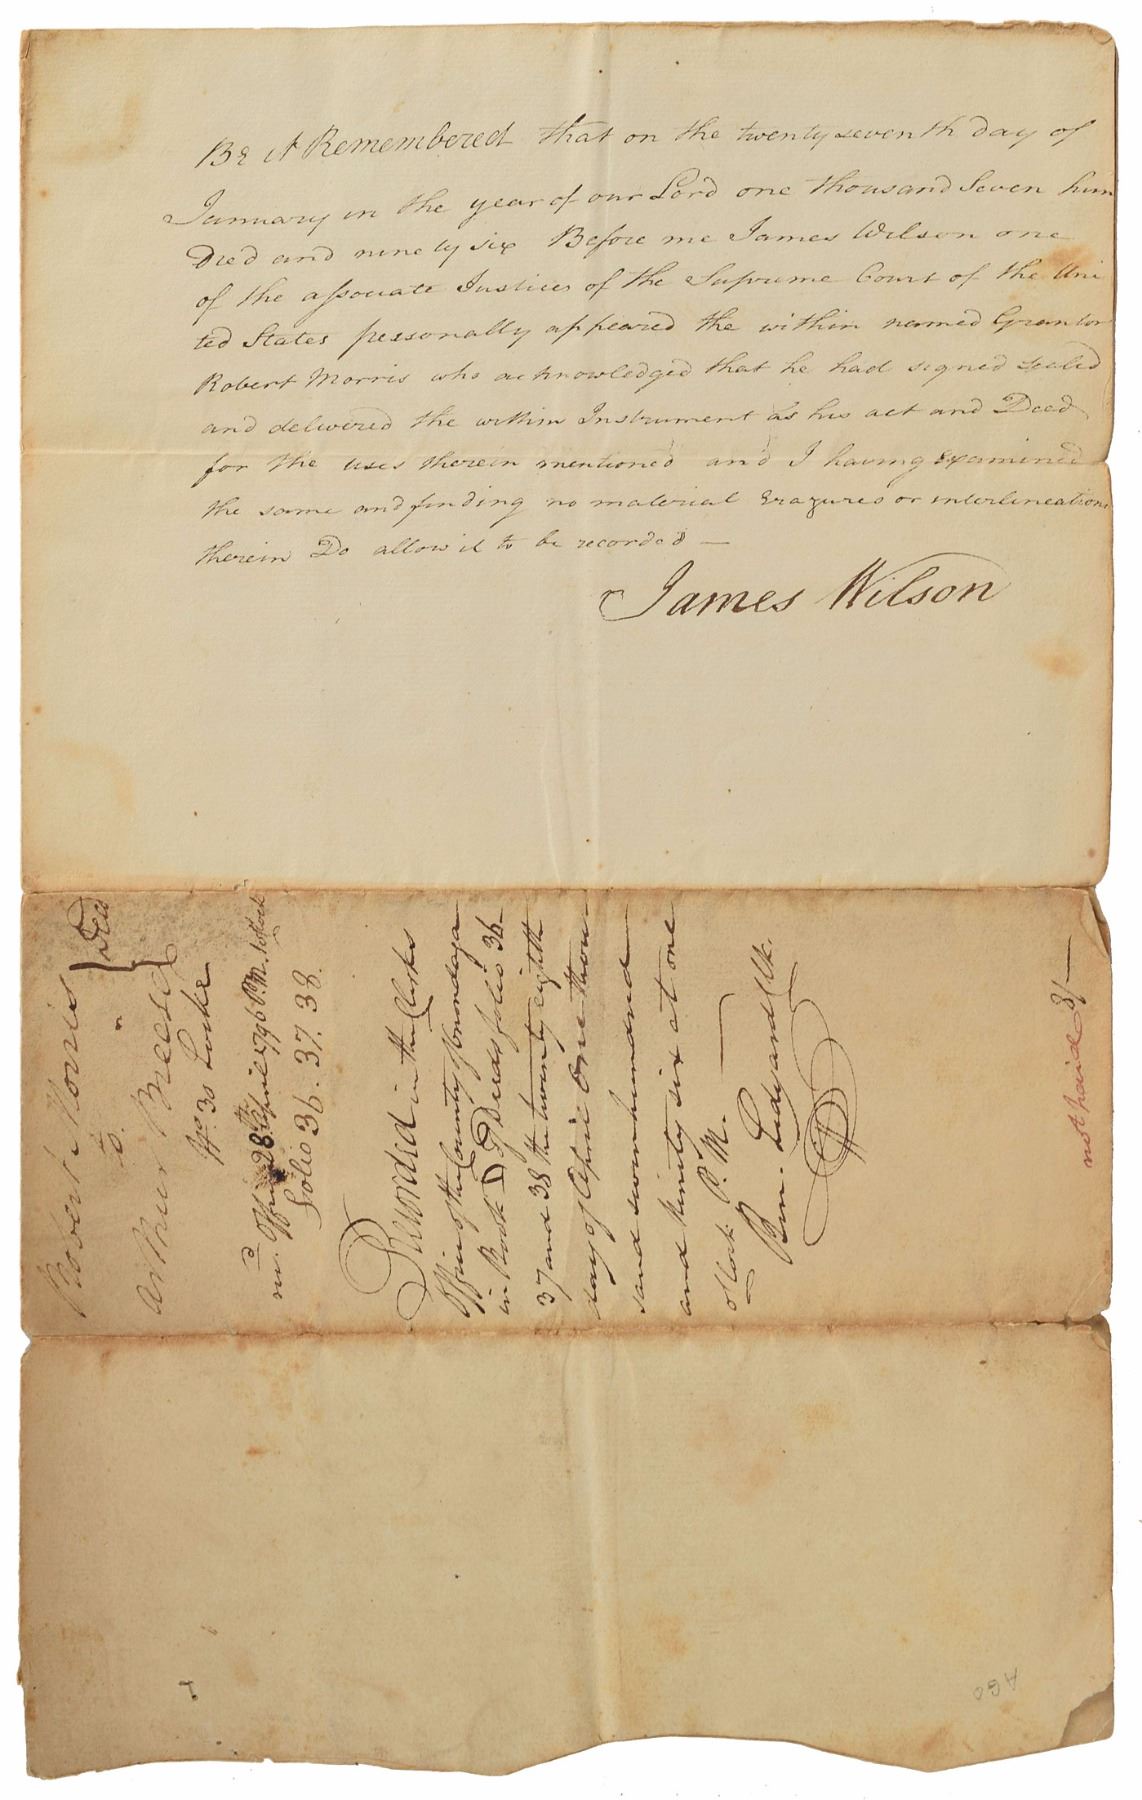 Be it Remembered that on the twenty seventh day of
January in the year of our Lord one thousand Seven hun
dred and ninety six Before me James Wilson one
of the associate Justices of the Supreme Court of the Uni
ted States personally appeared the within named Grantor
Robert Morris who acknowledged that he had signed sealed
and delivered the within Instrument as his act and Deed
for the uses therein mentioned and I having Examined
the same and finding no material Erazures or interlineations
therein Do allow it to be recorded —
James Wilson
Robert Morris
to
Arthur Breese
} Deed
No 30 Locke
28th April 1796 P.M. 1 oClock
folio 36. 37. 38.
Recorded in the Clerks
Office of the County of Onondaga
in Book D of Deeds folio 36
37 and 38 the twenty eighth
day of April One thou
sand seven hundred
and Ninety six at one
oClock P.M. —
Ben. Ledyard Clk.
not paid 8/—
AGO